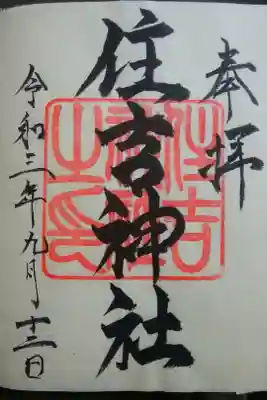 奉拝
住吉神社
令和三年九月十三日
住吉
神社
之印